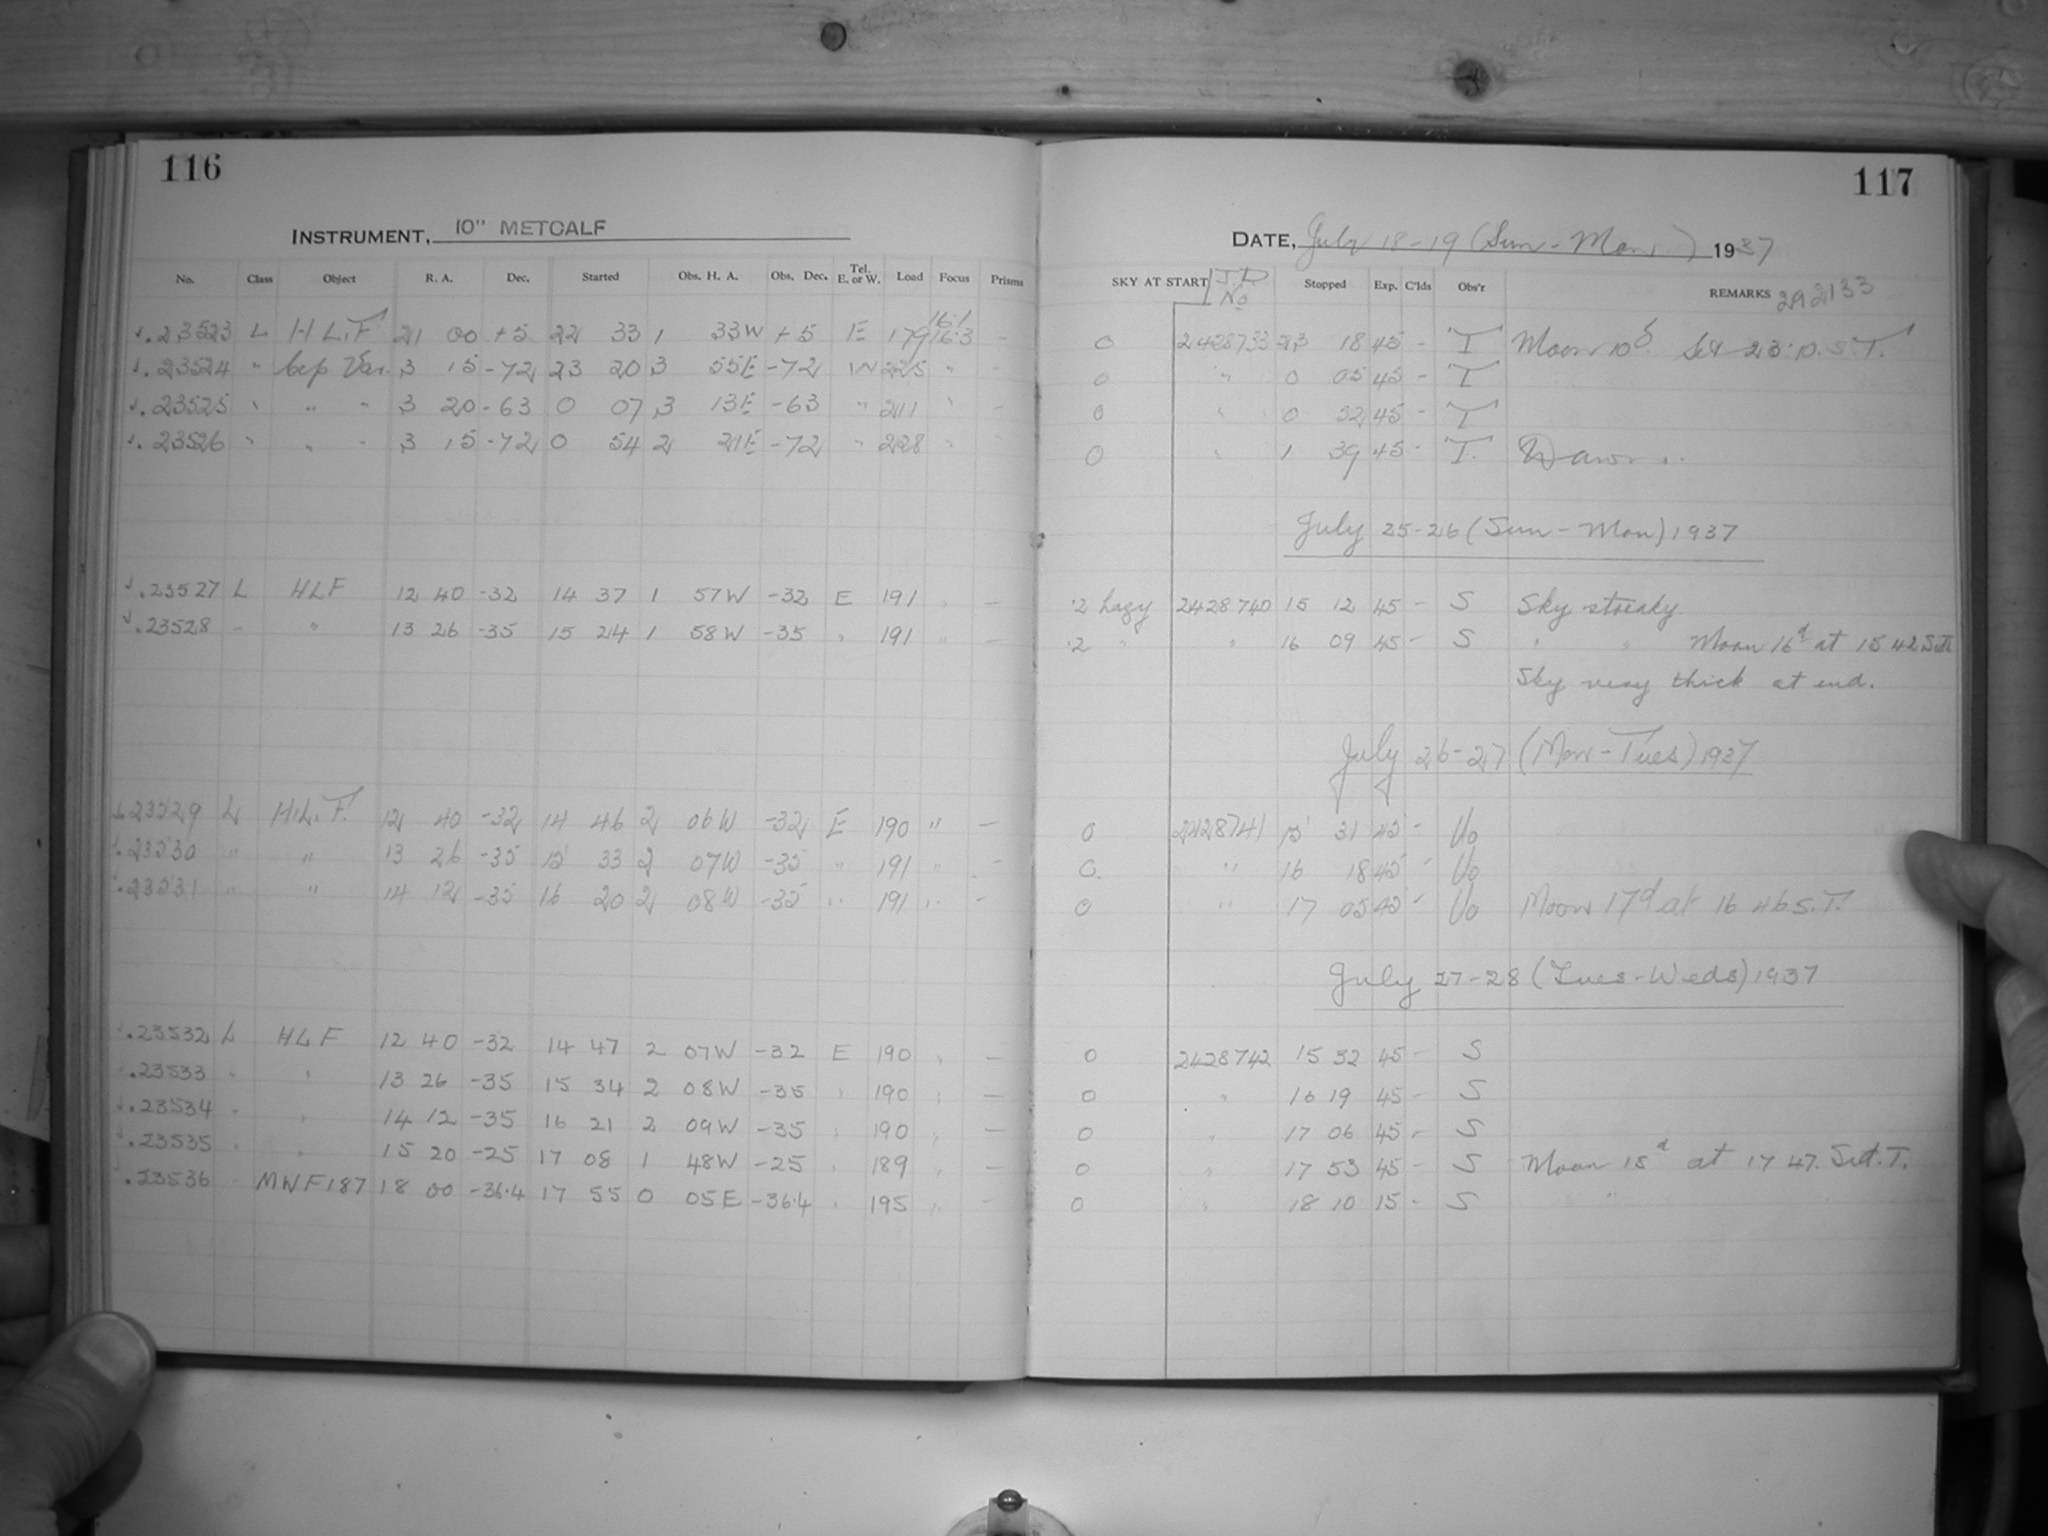 116
INSTRUMENT, 10" METCALF
No. Class Object R. A. Dec. Started Obs. H. A. Obs. Dec. Tel. E. or W. Load Focus Prisms
.23523 L H.L.F 21 00 +5 22 33 1 33W +5 E 179 16.1 16.3 -
.23524 " Cep Var. 3 15 -72 23 20 3 55E -72 W 225 " -
.23525 " " " 3 20 -63 0 07 3 13E -63 " 211 " -
.23526 " " " 3 15 -72 0 54 2 21E -72 " 228 " -
.23527 L HLF 12 40 -32 14 37 1 57W -32 E 191 " -
.23528 " " 13 26 -35 15 24 1 58W -35 " 191 " -
.23529 L H.L.F. 12 40 -32 14 46 2 06W -32 E 190 " -
.23530 " " 13 26 -35 15 33 2 07W -35 " 191 " -
.23531 " " 14 12 -35 16 20 2 08W -35 " 191 " -
.23532 L HLF 12 40 -32 14 47 2 07W -32 E 190 " -
.23533 " " 13 26 -35 15 34 2 08W -35 " 190 " -
.23534 " " 14 12 -35 16 21 2 09W -35 " 190 " -
.23535 " " 15 20 -25 17 08 1 48W -25 " 189 " -
.23536 " MWF187 18 00 -36.4 17 55 0 05E -36.4 " 195 " -
117
DATE, July 18-19 (Sun-Mon.) 1937
SKY AT START J.D. No Stopped Exp. C'lds Obs'r REMARKS 292133
0 2428733 23 18 45 - T Moon 10d. Set 23.10. S.T.
0 " 0 05 45 - T
0 " 0 52 45 - T
0 " 1 39 45 - T. Dawn..
July 25-26 (Sun-Mon) 1937
.2 hazy 2428740 15 12 45 - S Sky streaky
.2 " " 16 09 45 - S " " Moon 16d at 15 42 Sid
Sky very thick at end.
July 26-27 (Mon-Tues) 1937
0 2428741 15 31 45 - Uo
0. " 16 18 45 - Uo
0 " 17 05 45 - Uo Moon 17d at 16 46 S.T.
July 27-28 (Tues-Weds) 1937
0 2428742 15 32 45 - S
0 " 16 19 45 - S
0 " 17 06 45 - S
0 " 17 53 45 - S Moon 18d at 17 47. Sid. T.
0 " 18 10 15 - S "